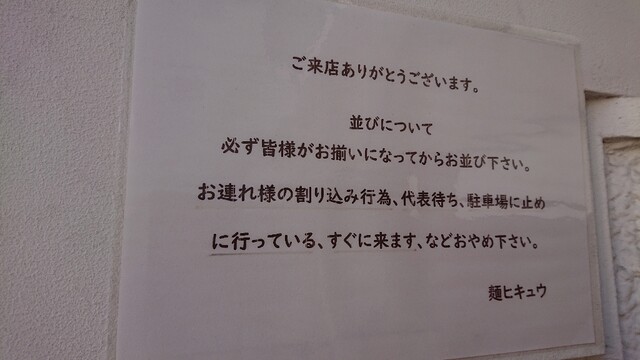 ご来店ありがとうございます。
並びについて
必ず皆様がお揃いになってからお並び下さい。
お連れ様の割り込み行為、代表待ち、駐車場に止め
に行っている、すぐに来ます、などおやめ下さい。
麵ヒキュウ